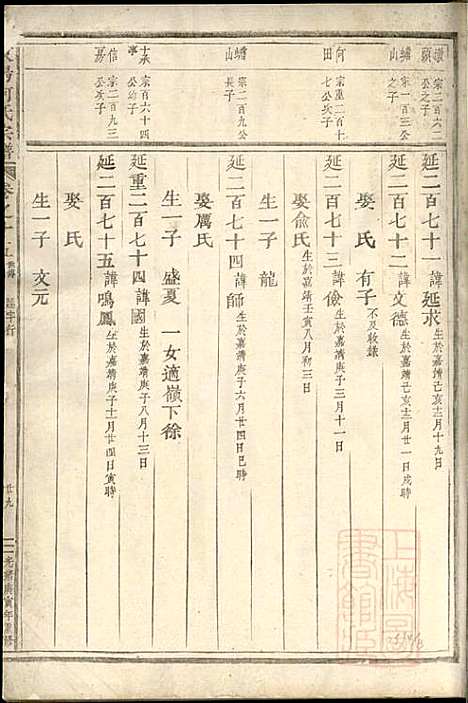 延二百七十一諱延求 生於嘉靖己亥十月十九日
蟠山 宗一百三公之子
延二百七十二諱文德 生於嘉靖己亥十一月廿一日戌時
娶 氏 有子 不及收錄
何田 宗重二百十七公次子
延二百七十三諱儉 生於嘉靖庚子三月十一日
娶俞氏 生於嘉靖壬寅八月初三日
生一子 龍
蟠山 宗二百九公長子
延二百七十四諱師 生於嘉靖庚子六月廿四日巳時
娶厲氏
生一子 盛夏 一女適嶺下徐
宗百六十四公幼子
延重二百七十四諱國 生於嘉靖庚子八月十三日
宗二百九三公次子
延二百七十五諱鳴鳳 生於嘉靖庚子十一月廿四日寅時
娶氏
生一子 文元
何氏宗譜
延字行
廿九
光緒庚寅年重修
上海圖書館藏